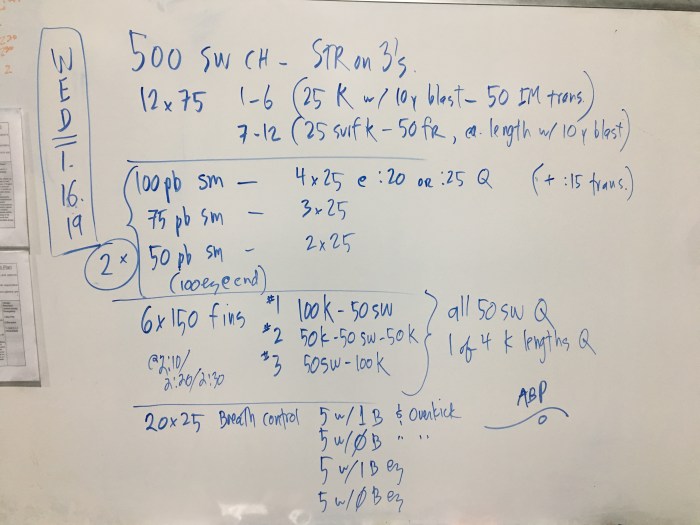 WED 1.16.19
500 SW CH - STR on 3's
12 x 75 1-6 (25 K w/ 10y blast - 50 IM trans.)
7-12 (25 surf k - 50 fr, ea. length w/ 10y blast)
2x
100 pb sm - 4 x 25 @ :20 or :25 Q (+ :15 trans.)
75 pb sm - 3 x 25
50 pb sm - 2 x 25
(100 eze end)
6 x 150 fins #1 100k - 50sw
#2 50k - 50 sw - 50k
#3 50sw - 100k
all 50 sw Q
1 of 4 k lengths Q
@2:10/
2:20/2:30
20 x 25 Breath control 5 w/1B & Overkick
5 w/ØB " "
5 w/1B ez
5 w/ØB ez
ABP